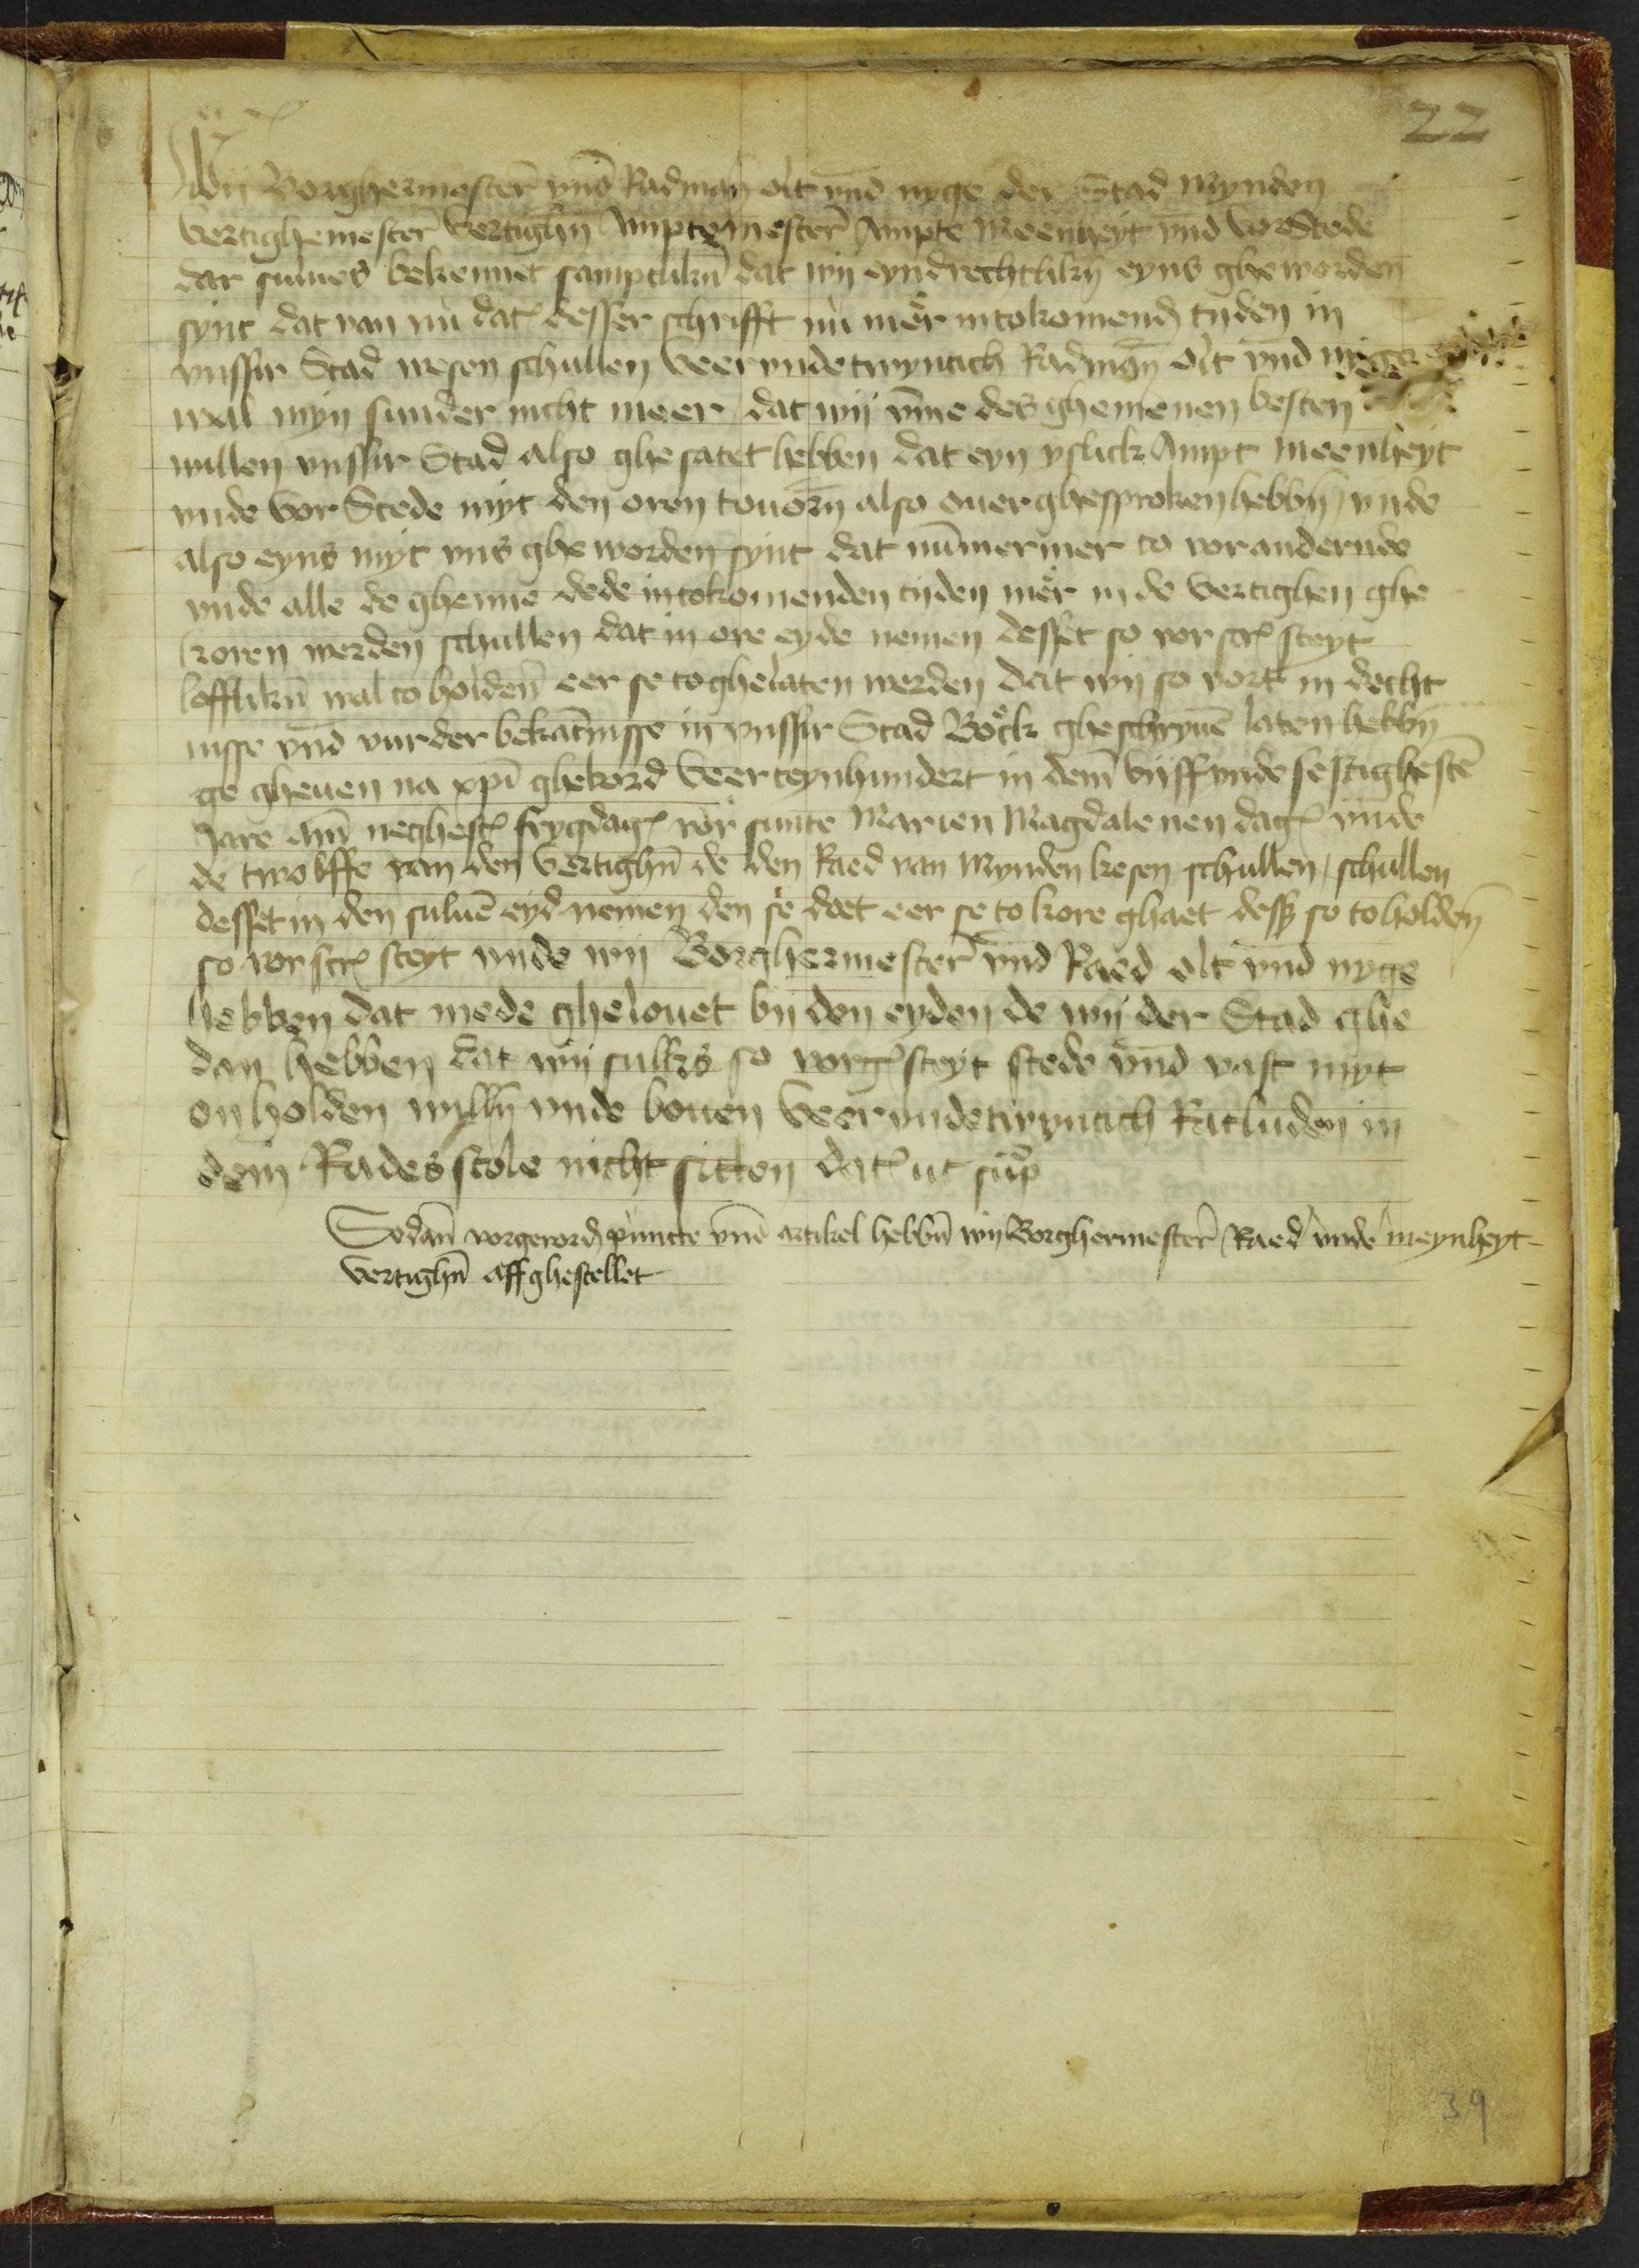 22
Wij Borghermester vnd Radman olt vnd nyge der Stad Mynden
vertighemester vertighn̄ Amptemester Ampte Meenheyt vnd vorstede
dar sulues bekennet samptlikn̄ dat wij eyndrechtlikn̄ eyns gheworden
synt dat van nu dat desser schrifft nu mer in tokomend tijden in
vnsser Stad wesen schullen veervndetwyntich Radman olt vnd nyge
wal myn sunder nicht meer dat wij vm̄e des ghemenen besten
willen vnsser Stad also ghesatet hebben dat eyn yslick Ampt meenheyt
vnde vor Stede myt den oren touorn̄ also ouerghesproken hebbn̄ / vnde
also eyns myt vns gheworden synt dat nūmermer to vorandernde
vnde alle de ghenne dede in tokomenden tijden mer in de vertighen ghe
koren werden schullen dat in ore eyde nemen desset so vorscr steyt
lofflikn̄ wal to holden eer se toghelaten werden dat wij so vort in decht
nisse vnd vurder bekātnisse in vnsser Stad Bock gheschryuē laten hebbn̄
ge gheuen na xpī ghebord veerteynhundert in dem vijffvndesestighestē
Jare Am̄ neghest frygdag vor sunte Marien Magdalenen dag vnde
de twolffe van den vertighn̄ de den Raed van Mynden kesen schullen / schullen
desset in den suluē eyd nemen den se doet eer se to kore ghaet dess so to holden
so vorscr steyt vnde wij Borghermester vnd Raed olt vnd nyge
hebben dat mede ghelouet bij den eyden de wij der Stad ghe
dan hebben dat wij sulks so vorg steyt stede vnd vast myt
on holden willn̄ vnde bouen veervndetwyntich Ratluden in
dem Rades stole nicht sitten dat ut sup
Sodan̄ vorgerord puncte vnd artikel hebbn̄ wij Borghermester Raed vnde meynheyt
vertighn̄ affghestellet
39